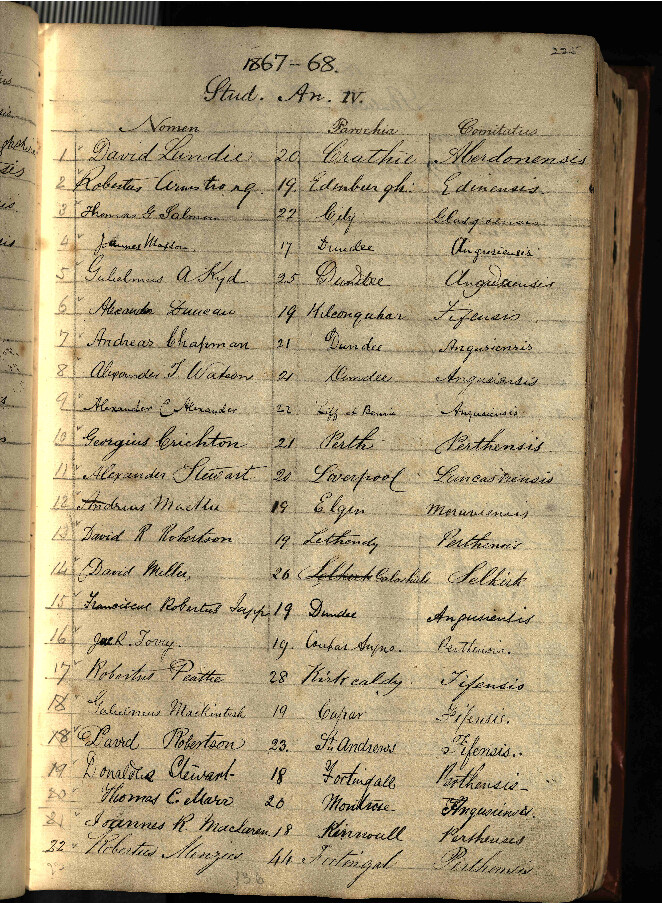 1867-68.
Stud. An. IV.
Nomen Parochia Comitatus
1 David Lundie 20. Crathie Aberdonensis
2 Robertus Armstrong. 19. Edinburgh. Edinensis.
3 Thomas G Salmon 22 City
4 Joannes 17 Dundee Angusiensis
5 Gulielmus A Kyd 25 Dundee Angusiensis
6 Alexander Duncan 19 Kilconquhar Fifensis
7 Andreas Chapman 21 Dundee Angusiensis
8 Alexander T. Watson 21 Dundee Angusiensis
9 Alexander C Alexander 22 Liff et Benvie Angusiensis
10 Georgius Crichton 21 Perth Perthensis
11 Alexander Stewart 20 Liverpool
12 Andrius 19 Elgin Moraviensis
13 David R Robertson 19 Lethendy Perthensis
14 David 26 Selkirk Galashiels Selkirk
15 Franciscus Robertus Japp 19 Dundee Angusiensis
16 19. Coupar Angus. Perthensis.
17 Robertus 28 Kirkcaldy. Fifensis
18 Gulielmus Mackintosh 19 Cupar Fifensis.
18 David Robertson 23. St. Andrews Fifensis.
19 Donaldus Stewart 18 Fortingall Perthensis
20 Thomas C. Marr 20 Montrose Angusiensis.
21 Joannes R. Maclaren 18 Kinnoull Perthensis
22 Robertus Menzies 44 Fortingal Perthensis